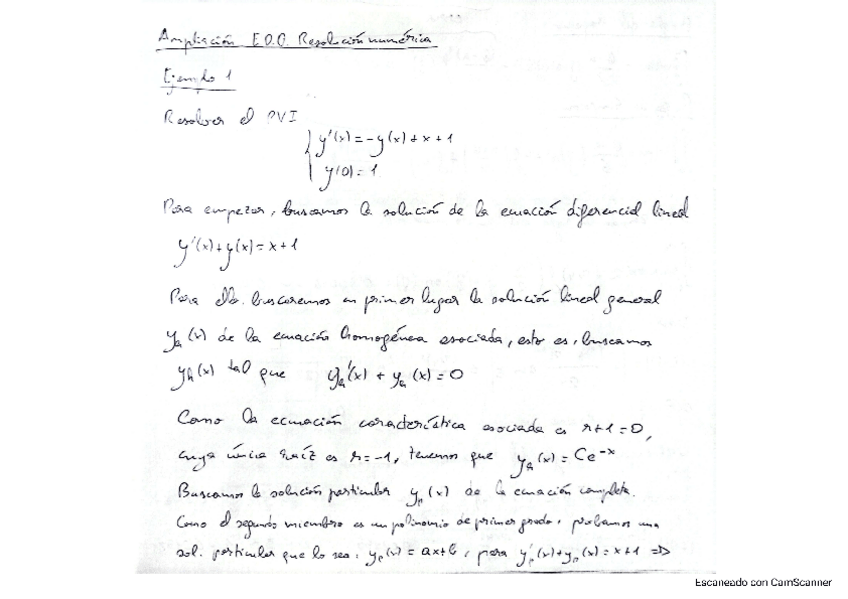 Ampliación E.D.O. Resolución numérica
Ejemplo 1
Resolver el PVI
y'(x) = -y(x) + x + 1
y(0) = 1
Para empezar, buscamos la solución de la ecuación diferencial lineal
y'(x) + y(x) = x + 1
Para ello, buscaremos en primer lugar la solución lineal general
yh(x) de la ecuación homogénea asociada, esto es, buscamos
yh(x) tal que yh'(x) + yh(x) = 0
Como la ecuación característica asociada es r+1=0,
cuya única raíz es r=-1, tenemos que yh(x) = Ce^-x
Buscamos la solución particular yp(x) de la ecuación completa.
Como el segundo miembro es un polinomio de primer grado, probamos una
sol. particular que lo sea: yp(x) = ax+b, para yp'(x)+yp(x) = x+1 ⇒
Escaneado con CamScanner